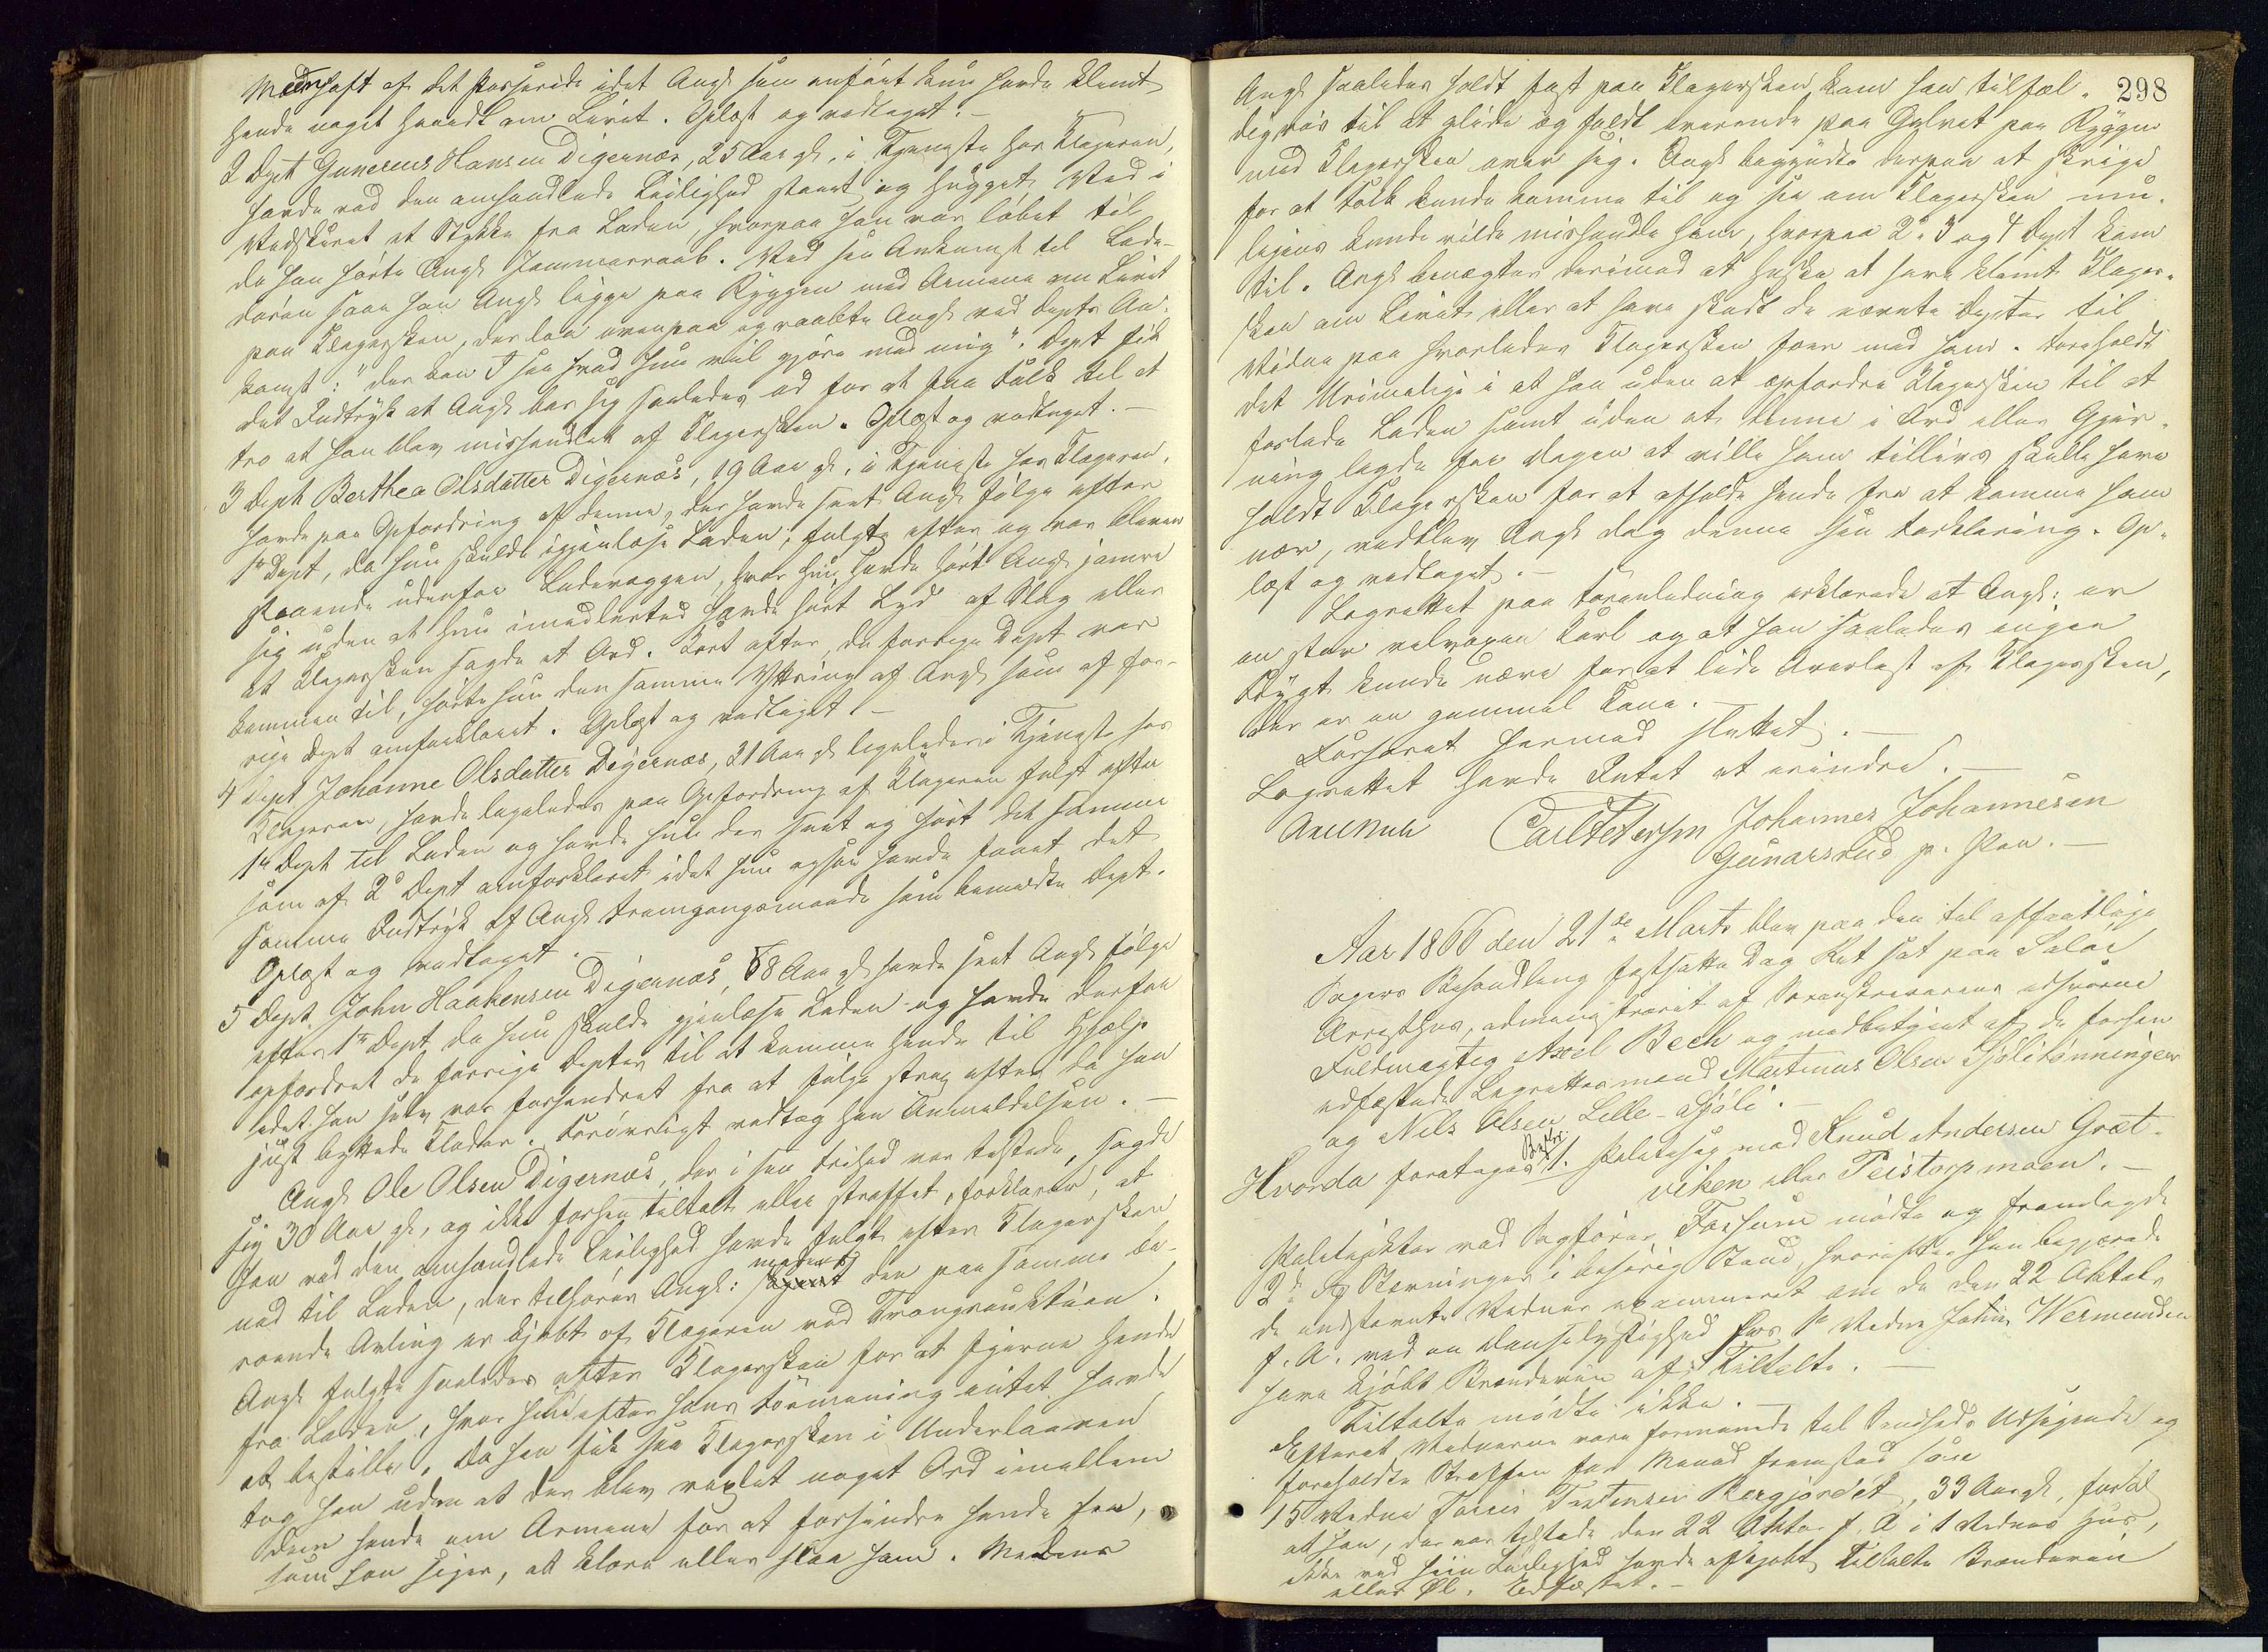 Medhaft af det Passerede idet Angk som anført kun havde klemt
hende noget haardt om Livet. Oplæst og vedtaget. –
2 Dept Gunerius Hansen Digernæs, 25 Aar gl, i Tjeneste hos Klageren,
havde ved den omhandlede Leilighed staaet og hugget Ved i
Vedskuret et Stykke fra Laden, hvorpaa han var løbet til
da han hørte Angk Jammerraab. Ved sin Ankomst til Lade-
døren saa han Angk ligge paa Ryggen med Armene om Livet
paa Klagersken, der laa ovenpaa og raabte Angk ved Depts An-
komst: "der kan I see hvad hun vil gjøre med mig". Dept fik
det Indtryk at Angk bar sig saaledes ad for at faa Folk til at
tro at han blev mishandlet af Klagersken. Oplæst og vedtaget. –
3 Dept Berthea Olsdatter Digernæs, 19 Aar gl, i Tjeneste hos Klageren,
havde paa Opfordring af denne, der havde seet Angk følge efter
1ste Dept, da hun skulde igjenlaase Laden, fulgte efter og var bleven
staaende udenfor Ladevæggen, hvor hun havde hørt Angk jamre
sig uden at hun imidlertid havde hørt Lyd af Slag eller
at Klagersken sagde et Ord. Kort efter, da forrige Dept var
kommen til, hørte hun den samme Yttring af Angk som af for-
rige Dept omforklaret. Oplæst og vedtaget. –
4 Dept Johanne Olsdatter Digernæs, 21 Aar gl ligeledes i Tjeneste hos
Klageren, havde ligeledes paa Opfordring af Klageren fulgt efter
1ste Dept til Laden og havde hun der seet og hørt det samme
som af 2 Dept omforklaret idet hun ogsaa havde faaet det
samme Indtryk af Angk Fremgangsmaade som bemeldte Dept.
Oplæst og vedtaget. –
5 Dept John Haakensen Digernæs, 58 Aar gl havde seet Angk følge
efter 1ste Dept da hun skulde gjenlaase Laden og havde derfor
opfordret de forrige Depter til at komme hende til Hjælp
idet han selv var forhindret fra at følge strax efter da han
just byttede Klæder. Forøvrigt vedtog han Anmeldelsen. –
Angk Ole Olsen Digernæs, der i sin Frihed var tilstede, sagde
sig 30 Aar gl, og ikke forhen tiltalt eller straffet, forklarer, at
han ved den omhandlede Leilighed havde fulgt efter Klagersken
ned til Laden, der tilhører Angk: medens den paa samme væ-
rende Avling er kjøbt af Klageren ved Tvangsauktion.
Angk fulgte saaledes efter Klagersken for at fjerne hende
fra Laden, hvor hun efter hans Formening intet havde
at bestille. Da han fik see Klagersken i Underlaaven
tog han uden at der blev vexlet noget Ord imellem
dem hende om Armene for at forhindre hende fra,
som han siger, at klore eller slaa ham. Medens
298
Angk saaledes holdt fast paa Klagersken kom han tilfæl-
digvis til at glide og faldt overende paa Gulvet paa Ryggen
med Klagersken over sig. Angk begyndte derpaa at skrige
for at Folk kunde komme til og see om Klagersken mu-
ligens kunde ville mishandle ham, hvorpaa 2, 3 og 4 Dept kom
til. Angk benægter derimod at huske at have klemt Klager-
sken om Livet eller at have kaldt de nævnte Depter til
Vidne paa hvorledes Klagersken foer med ham. Foreholdt
det Urimelige i at han uden at opfordre Klagersken til at
forlade Laden samt uden at denne i Ord eller Gjer-
ning lagde for Dagen at ville ham tillivs skulle have
holdt Klagersken for at afholde hende fra at komme ham
nær, vedblev Angk dog denne sin Forklaring. Op-
læst og vedtaget. –
Lagrettet paa Foranledning erklærede at Angk: er
en stor velvoxen Karl og at han saaledes ingen
Frygt kunde nære for at lide Overlast af Klagersken,
der er en gammel Kone. –
Forhøret hermed sluttet. –
Lagrettet havde Intet at erindre. –
Carl Petersen Johannes Johannesen
Gunarsrud p. Pen. –
Aar 1866 den 21de Marts blev paa den til offentlige
Sagers Behandling fastsatte Dag Ret sat paa Solør
Arresthus, administreret af Sorenskriverens edsvorne
Fuldmægtig Axel Bech og medbetjent af de forhen
edfæstede Lagrettesmænd Martinus Olsen Sjølitønningen
og Nils Olsen Lille-Sjøli.
Hvorda foretoges 1. Politisag mod Knud Andersen Græt-
viken eller Peistorpmoen. –
Politiaktor ved Sagfører Fossum mødte og fremlagde
2de Stævninger i behørig Stand, hvorefter han begjærede
de indstævnte Vidner examineret om de den 22 Oktober
f. A. ved en Danselystighed hos 1ste Vidne Johan Wermundsen
have kjøbt Brændeviin af Tiltalte. –
Tiltalte mødte ikke. –
Efterat Vidnerne vare formanede til Sandheds Udsigende og
foreholdte Straffen for Meneed fremstod som
15 Vidne Torstensen Bergjordet, 33 Aar gl, forkl
at han, der var tilstede den 22 Oktbr f. A i 1 Vidnes Huus,
ikke ved hiin Leilighed havde afkjøbt Tiltalte Brændeviin
eller Øl. Edfæstet. –